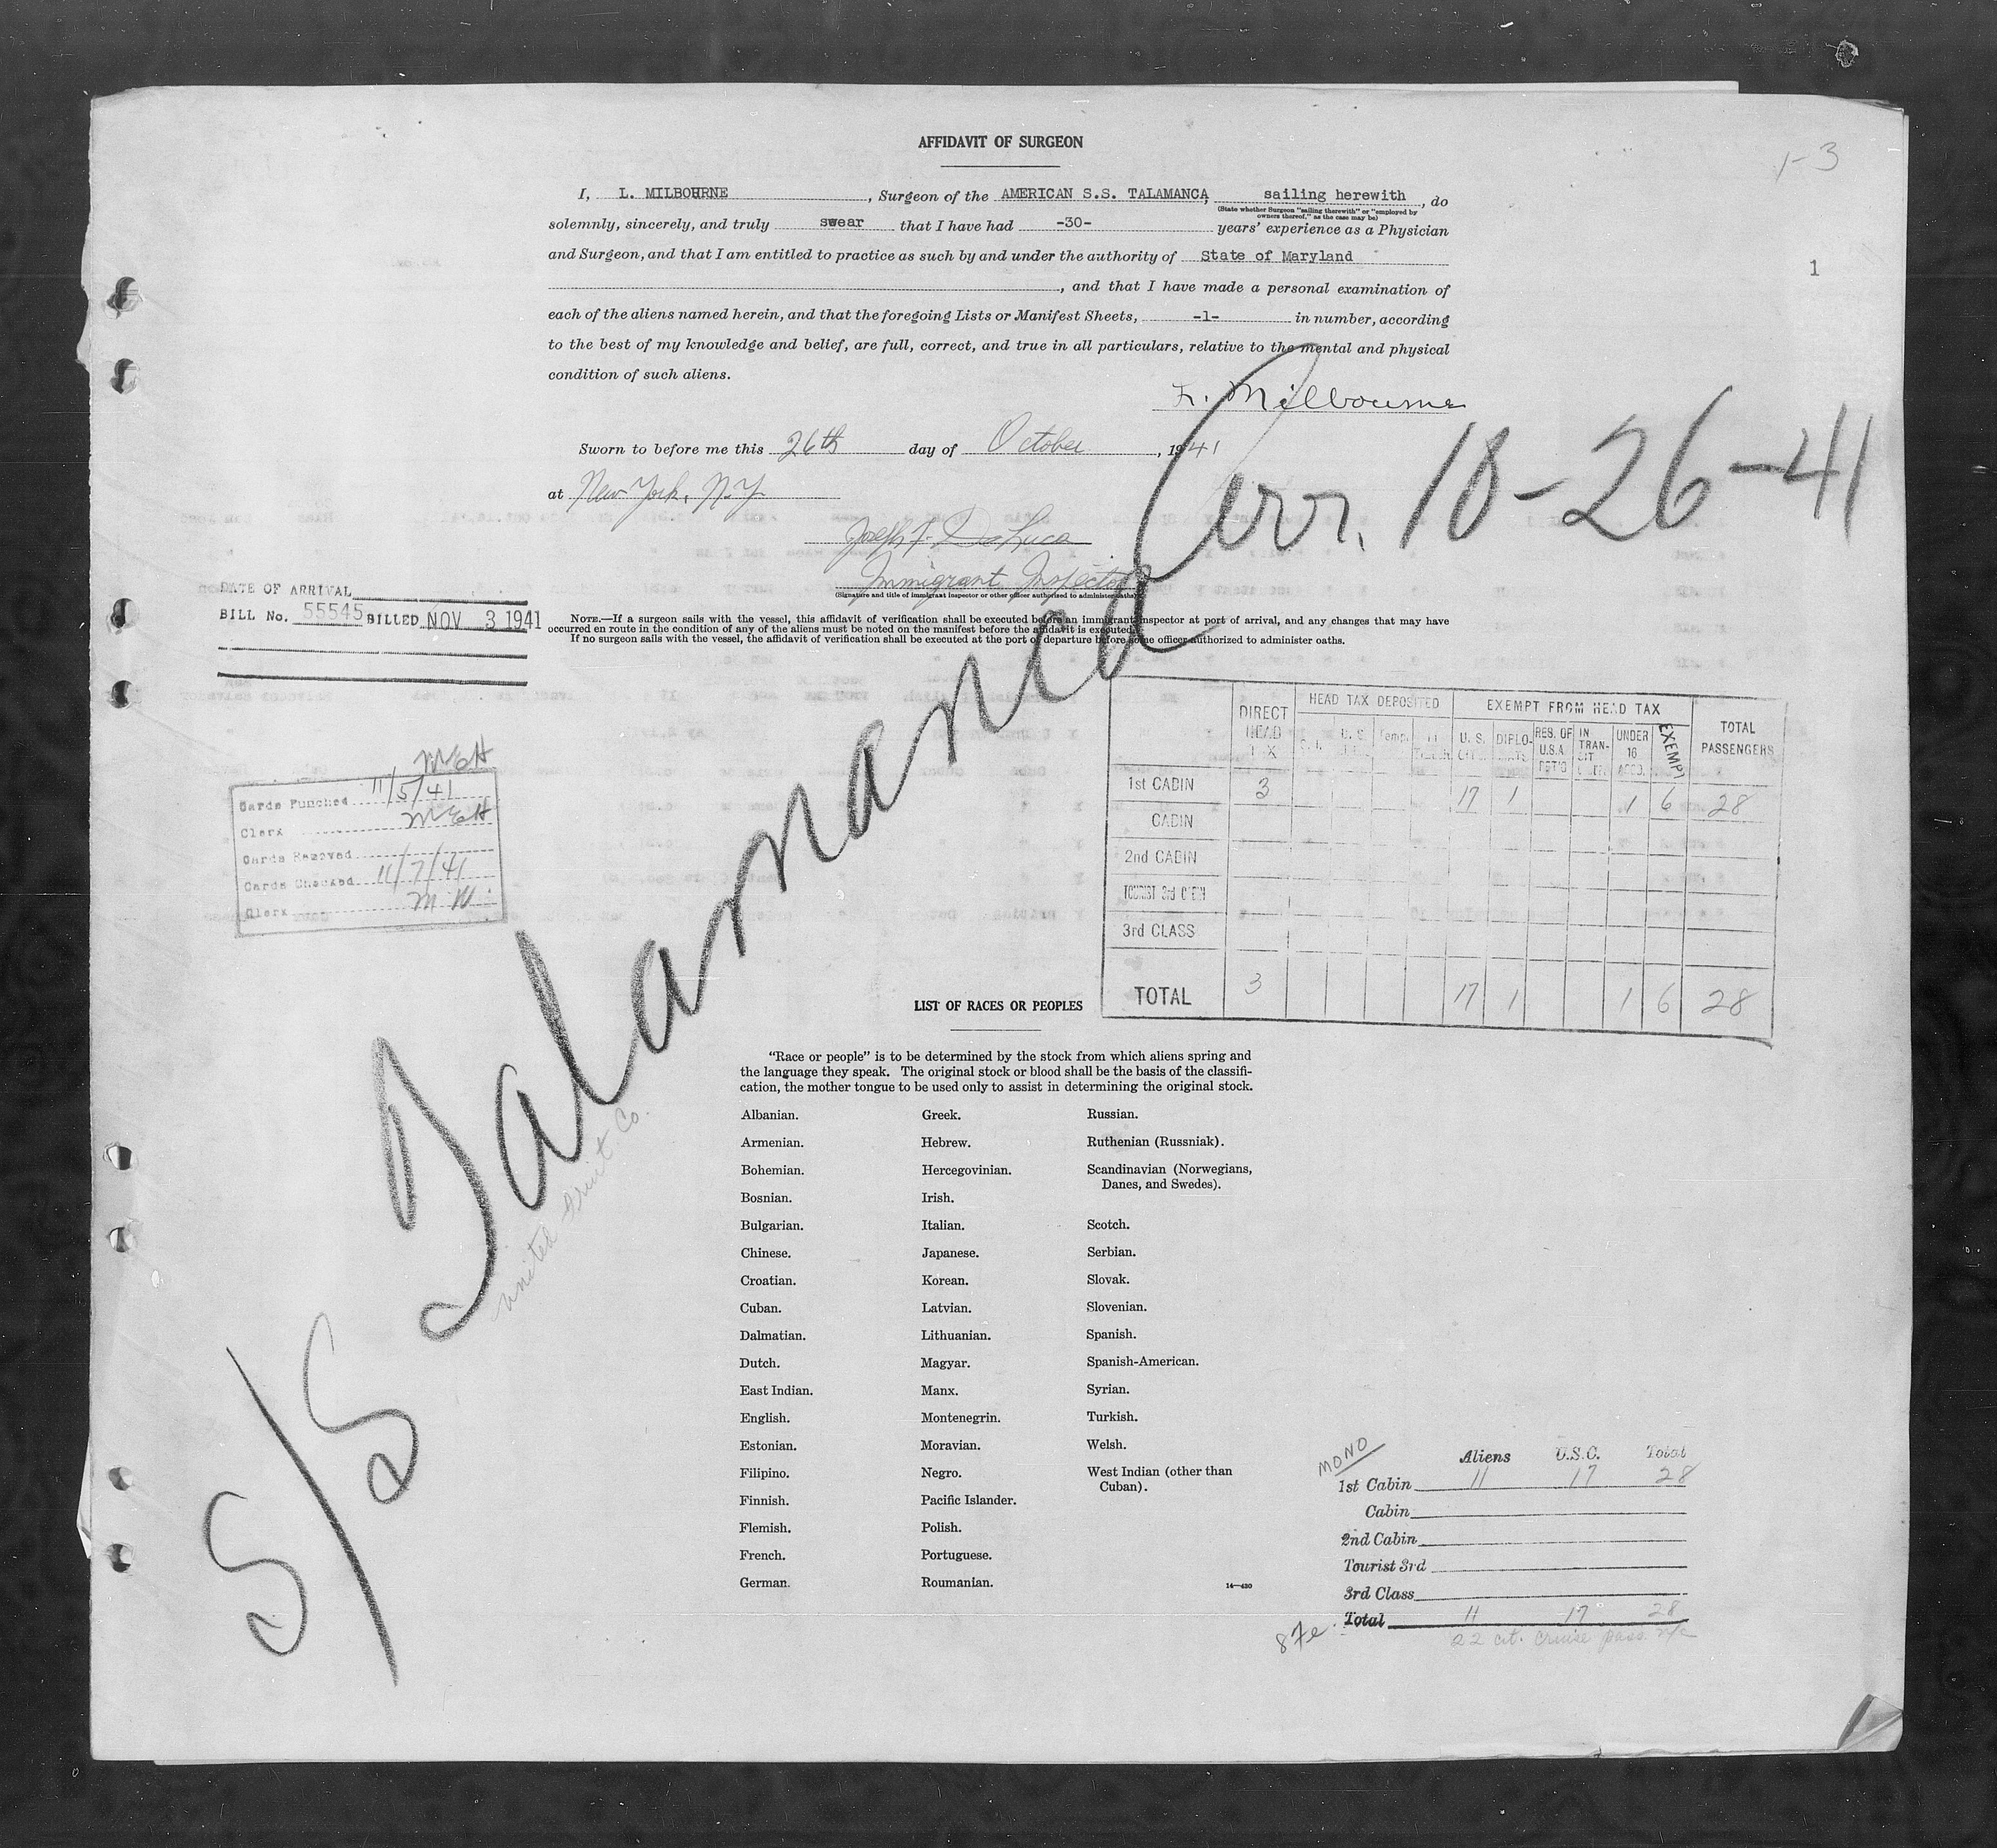 AFFIDAVIT OF SURGEON
1-3
I, L. MILBOURNE, Surgeon of the AMERICAN S.S. TALAMANCA, sailing herewith, do
(State whether Surgeon "sailing therewith" or "employed by owners thereof," as the case may be)
solemnly, sincerely, and truly swear that I have had -30- years' experience as a Physician
and Surgeon, and that I am entitled to practice as such by and under the authority of State of Maryland
1
, and that I have made a personal examination of
each of the aliens named herein, and that the foregoing Lists or Manifest Sheets, -1- in number, according
to the best of my knowledge and belief, are full, correct, and true in all particulars, relative to the mental and physical
condition of such aliens.
L. Milbourne
Sworn to before me this 26th day of October, 1941
at New York, N.Y.
Joseph F. DeLuca
Immigrant Inspector
(Signature and title of immigrant inspector or other officer authorized to administer oaths)
S/S Talamanca arr. 10-26-41
United Fruit Co.
DATE OF ARRIVAL
BILL No. 55545 BILLED NOV 3 1941
NOTE.—If a surgeon sails with the vessel, this affidavit of verification shall be executed before an immigrant inspector at port of arrival, and any changes that may have
occurred en route in the condition of any of the aliens must be noted on the manifest before the affidavit is executed.
If no surgeon sails with the vessel, the affidavit of verification shall be executed at the port of departure before some officer authorized to administer oaths.
McH
Cards Punched 11/5/41
Clerk McH
Cards Removed
Cards Checked 11/7/41
Clerk M.W.
DIRECT HEAD TAX
HEAD TAX DEPOSITED
EXEMPT FROM HEAD TAX
TOTAL PASSENGERS
U.S. Temp. U.S. CIT. DIPLOMATS RES. OF U.S.A. RET'D IN TRANSIT UNDER 16 ACCO. EXEMPT
1st CABIN 3 17 1 1 6 28
CABIN
2nd CABIN
TOURIST 3rd CABIN
3rd CLASS
TOTAL 3 17 1 1 6 28
LIST OF RACES OR PEOPLES
"Race or people" is to be determined by the stock from which aliens spring and
the language they speak. The original stock or blood shall be the basis of the classifi-
cation, the mother tongue to be used only to assist in determining the original stock.
Albanian.
Armenian.
Bohemian.
Bosnian.
Bulgarian.
Chinese.
Croatian.
Cuban.
Dalmatian.
Dutch.
East Indian.
English.
Estonian.
Filipino.
Finnish.
Flemish.
French.
German.
Greek.
Hebrew.
Hercegovinian.
Irish.
Italian.
Japanese.
Korean.
Latvian.
Lithuanian.
Magyar.
Manx.
Montenegrin.
Moravian.
Negro.
Pacific Islander.
Polish.
Portuguese.
Roumanian.
Russian.
Ruthenian (Russniak).
Scandinavian (Norwegians,
Danes, and Swedes).
Scotch.
Serbian.
Slovak.
Slovenian.
Spanish.
Spanish-American.
Syrian.
Turkish.
Welsh.
West Indian (other than
Cuban).
14—430
MONO
Aliens U.S.C. Total
1st Cabin 11 17 28
Cabin
2nd Cabin
Tourist 3rd
3rd Class
Total 11 17 28
22 cit. cruise pass.